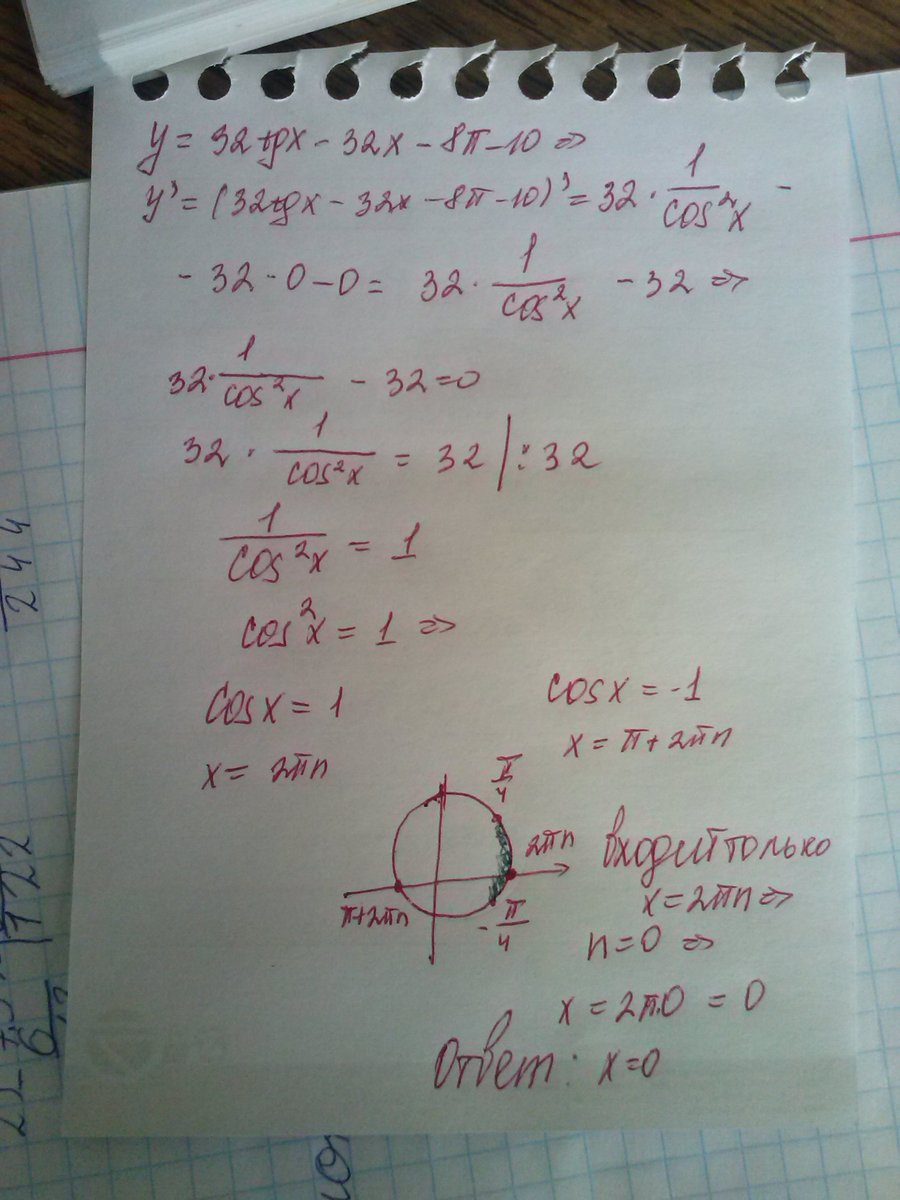 y = 32tgx - 32x - 8π - 10 =>
y' = (32tgx - 32x - 8π - 10)' = 32 · 1/cos²x -
- 32 - 0 - 0 = 32 · 1/cos²x - 32 =>
32 · 1/cos²x - 32 = 0
32 · 1/cos²x = 32 | : 32
1/cos²x = 1
cos²x = 1 =>
cosx = 1
cosx = -1
x = 2πn
x = π + 2πn
π/4
2πn
π+2πn
-π/4
входит только
x = 2πn =>
n = 0 =>
x = 2π·0 = 0
Ответ: x=0
244